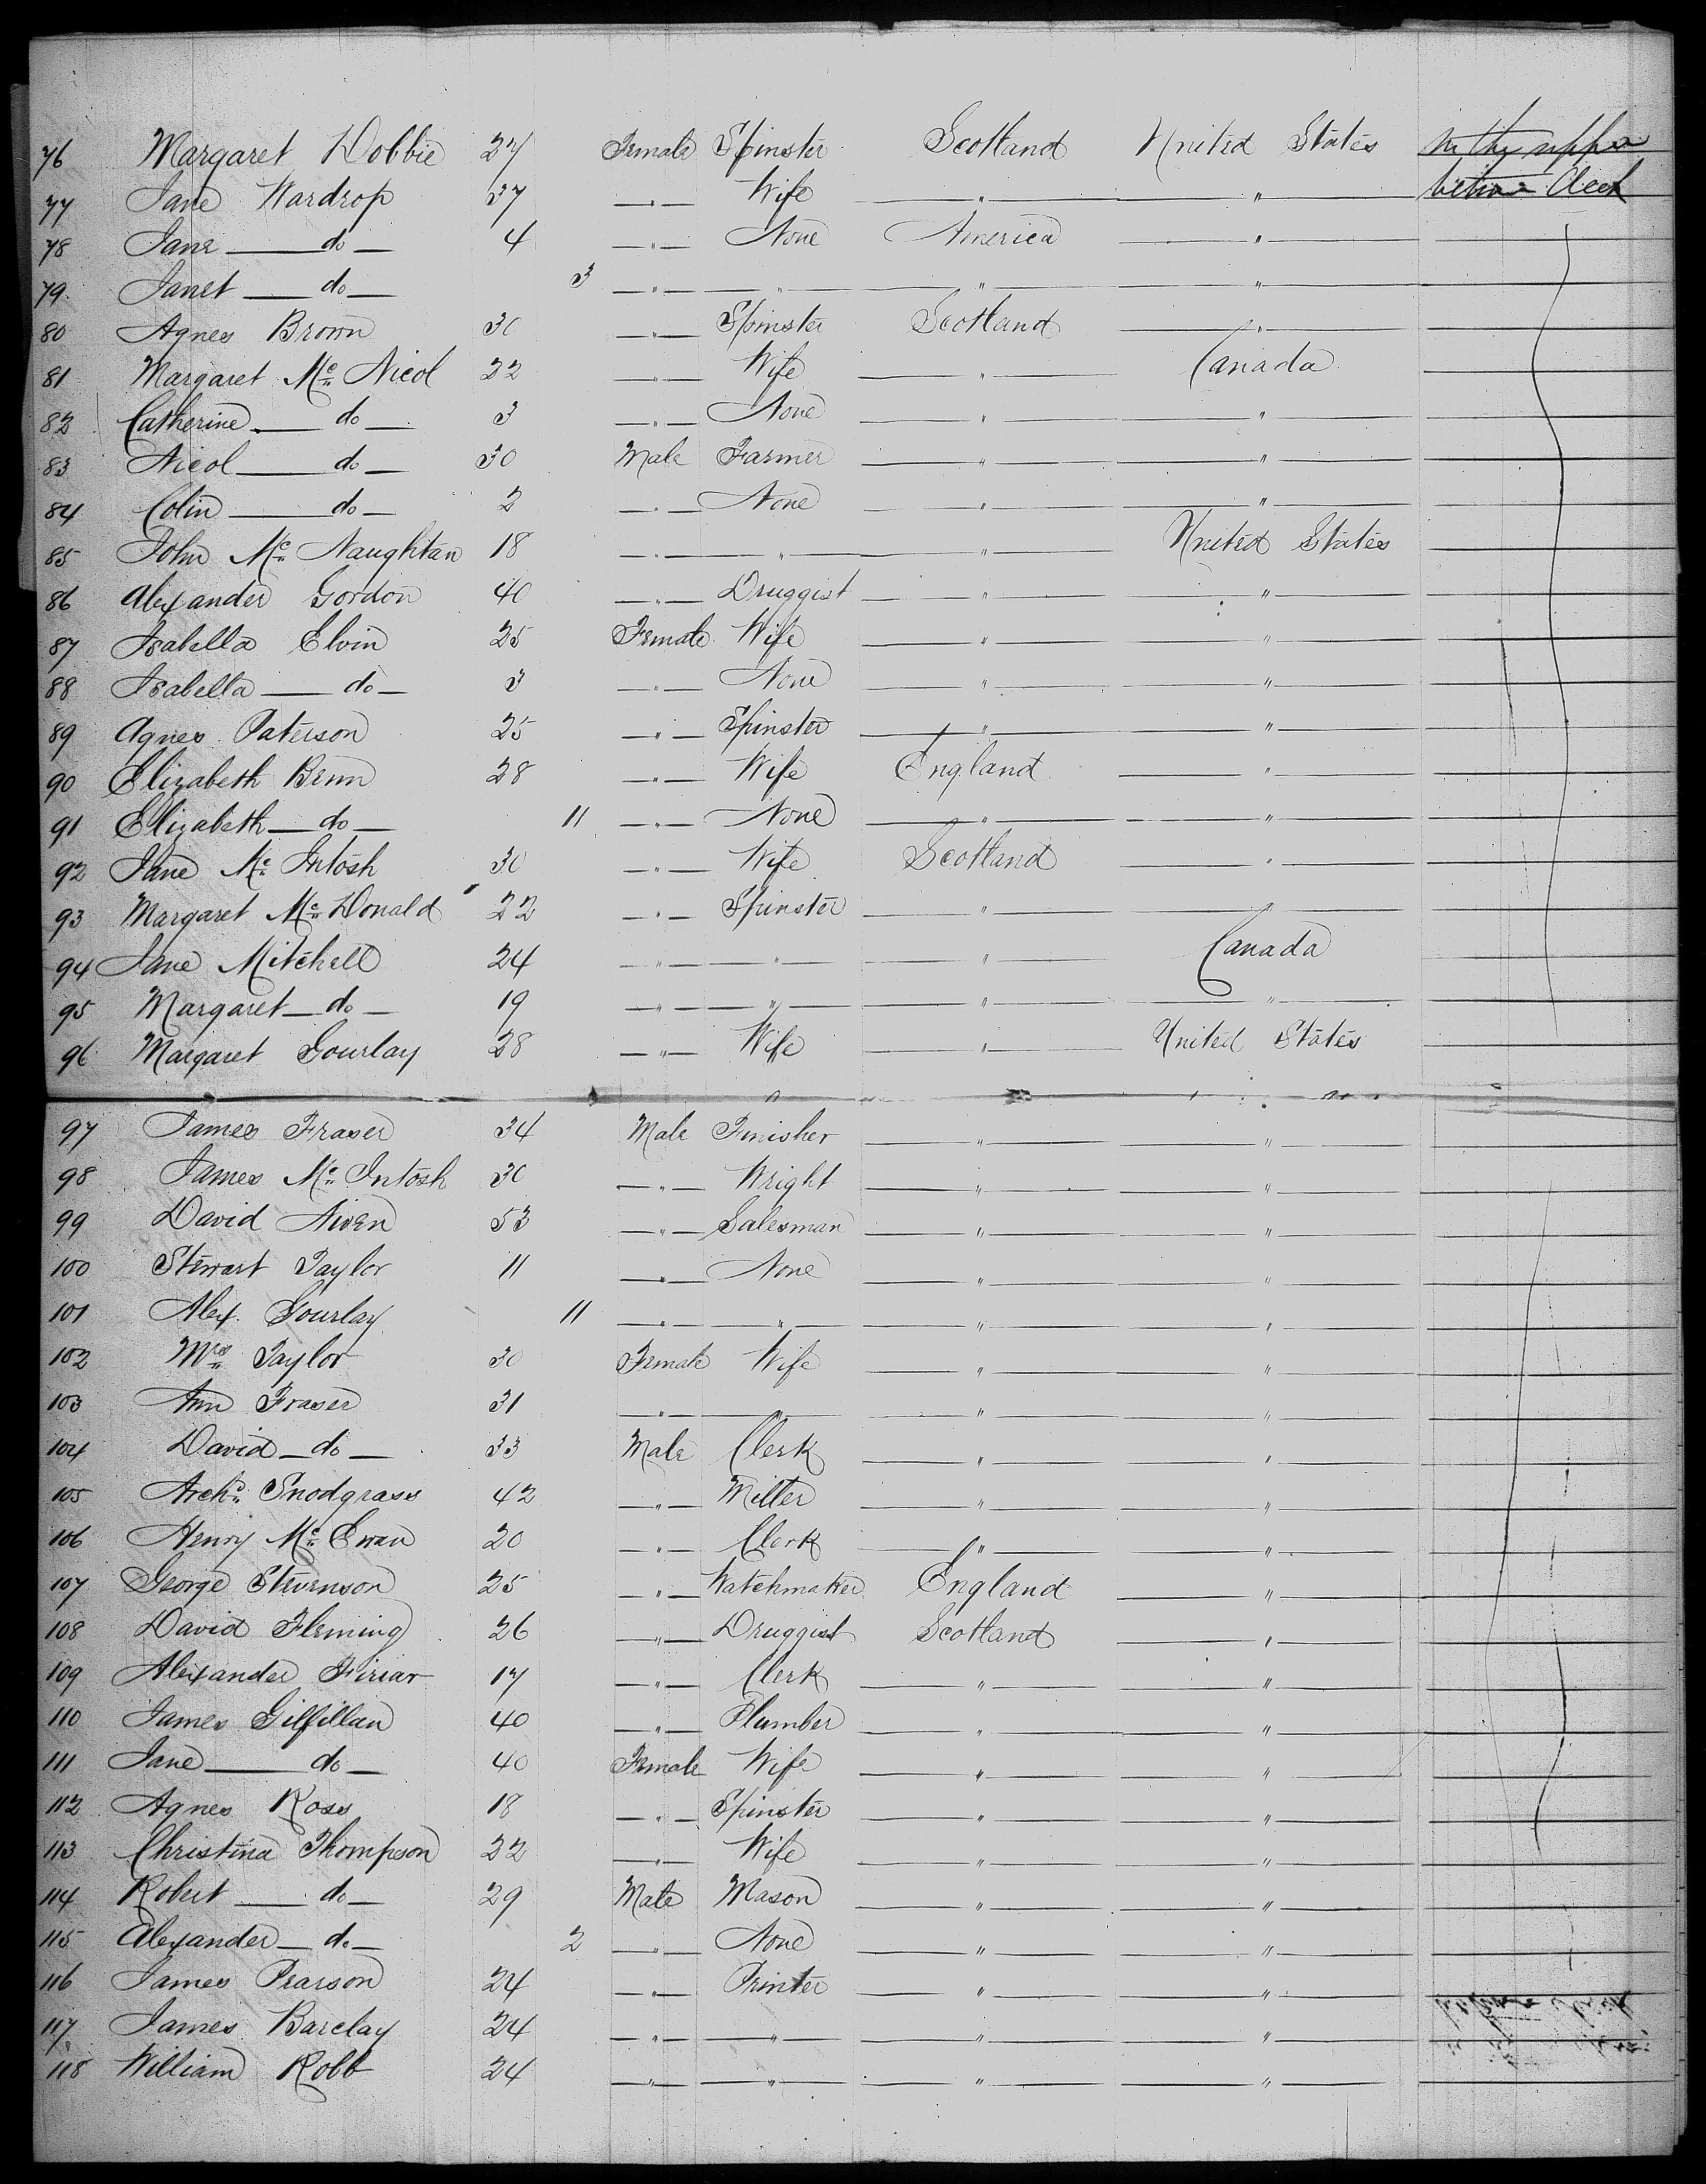 76 Margaret Dobbie 27 Female Spinster Scotland United States In the upper
77 Jane Wardrop 37 —"— Wife —"— —"— between Deck
78 Jane — do — 4 —"— None America —"—
79 Janet — do — 3 —"— —"— —"— —"—
80 Agnes Brown 30 —"— Spinster Scotland —"—
81 Margaret Mc Nicol 22 —"— Wife —"— Canada
82 Catherine — do — 3 —"— None —"— —"—
83 Nicol — do — 30 Male Farmer —"— —"—
84 Colin — do — 2 —"— None —"— —"—
85 John Mc Naughtan 18 —"— —"— —"— United States
86 Alexander Gordon 40 —"— Druggist —"— —"—
87 Isabella Elvin 25 Female Wife —"— —"—
88 Isabella — do — 3 —"— None —"— —"—
89 Agnes Paterson 25 —"— Spinster —"— —"—
90 Elizabeth Benn 28 —"— Wife England —"—
91 Elizabeth — do — 11 —"— None —"— —"—
92 Jane Mc Intosh 30 —"— Wife Scotland —"—
93 Margaret Mc Donald 22 —"— Spinster —"— —"—
94 Jane Mitchell 24 —"— —"— —"— Canada
95 Margaret — do — 19 —"— —"— —"— —"—
96 Margaret Gourlay 28 —"— Wife —"— United States
97 James Fraser 34 Male Finisher —"— —"—
98 James Mc Intosh 30 —"— Wright —"— —"—
99 David Niven 53 —"— Salesman —"— —"—
100 Stewart Taylor 11 —"— None —"— —"—
101 Alex. Gourlay 11 —"— —"— —"— —"—
102 Mrs Taylor 30 Female Wife —"— —"—
103 Ann Fraser 31 —"— —"— —"— —"—
104 David — do — 33 Male Clerk —"— —"—
105 Archd Snodgrass 42 —"— Miller —"— —"—
106 Henry Mc Ewan 20 —"— Clerk —"— —"—
107 George Stevenson 25 —"— Watchmaker England —"—
108 David Fleming 26 —"— Druggist Scotland —"—
109 Alexander 17 —"— Clerk —"— —"—
110 James Gilfillan 40 —"— Plumber —"— —"—
111 Jane — do — 40 Female Wife —"— —"—
112 Agnes Ross 18 —"— Spinster —"— —"—
113 Christina Thompson 22 —"— Wife —"— —"—
114 Robert — do — 29 Male Mason —"— —"—
115 Alexander — do — 2 —"— None —"— —"—
116 James Pearson 24 —"— Printer —"— —"—
117 James Barclay 24 —"— —"— —"— —"—
118 William Robb 24 —"— —"— —"— —"—